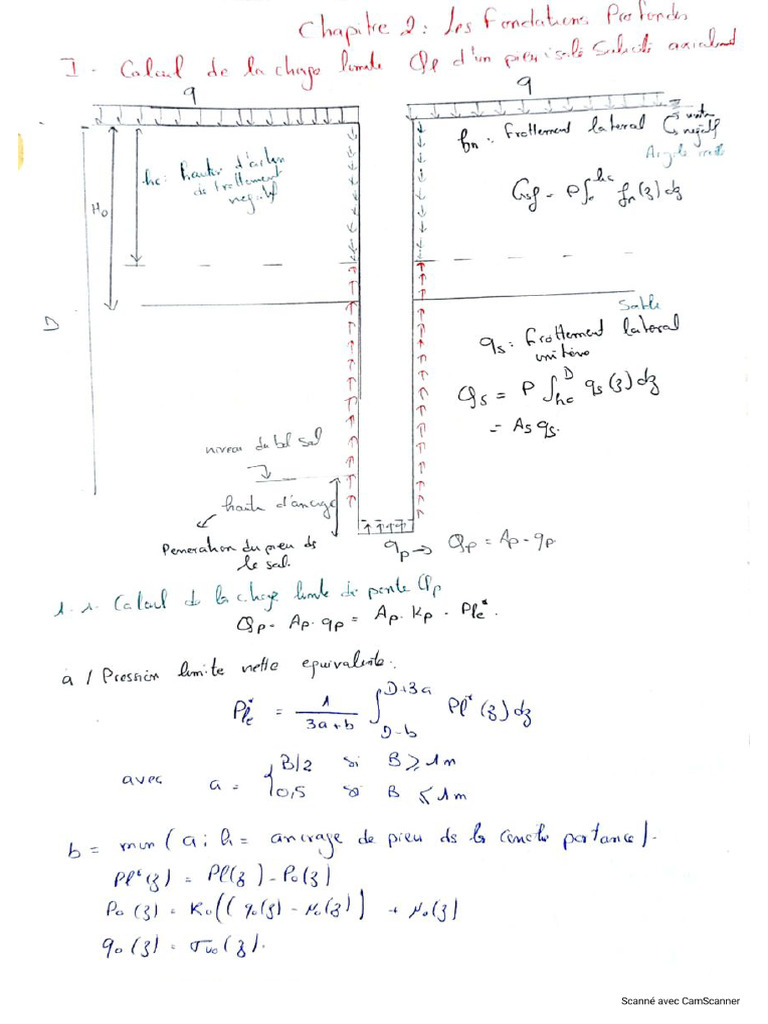 Chapitre 2 : Les Fondations Profondes
I - Calcul de la charge limite Qp d'un pieu isolé Sollicité axialement
q
q
fn : frottement lateral unitaire negatif
Argile molle
hc : hauteur d'action de frottement negatif
H0
Gsf = P ∫0^hc fn(z) dz
D
Sable
qs : frottement lateral unitaire
Qs = P ∫hc^D qs(z) dz
= As qs.
niveau du bel sol
haute d'ancrage
Penetration du pieu ds le sol.
qp → Qp = Ap - qp
1.1. Calcul de la charge limite de pointe Qp
Qp = Ap. qp = Ap. Kp . Ple*.
a / Pression limite nette equivalente.
Ple* = 1/(3a+b) ∫D-b^D+3a Pl*(z) dz
avec a = { B/2 si B ⩾ 1m
0,5 si B ⩽ 1m
b = min (a ; h = ancrage de pieu ds la couche portance).
Pl*(z) = Pl(z) - Po(z)
Po(z) = Ko((qo(z) - μo(z)) + μo(z)
qo(z) = σvo(z).
Scanné avec CamScanner